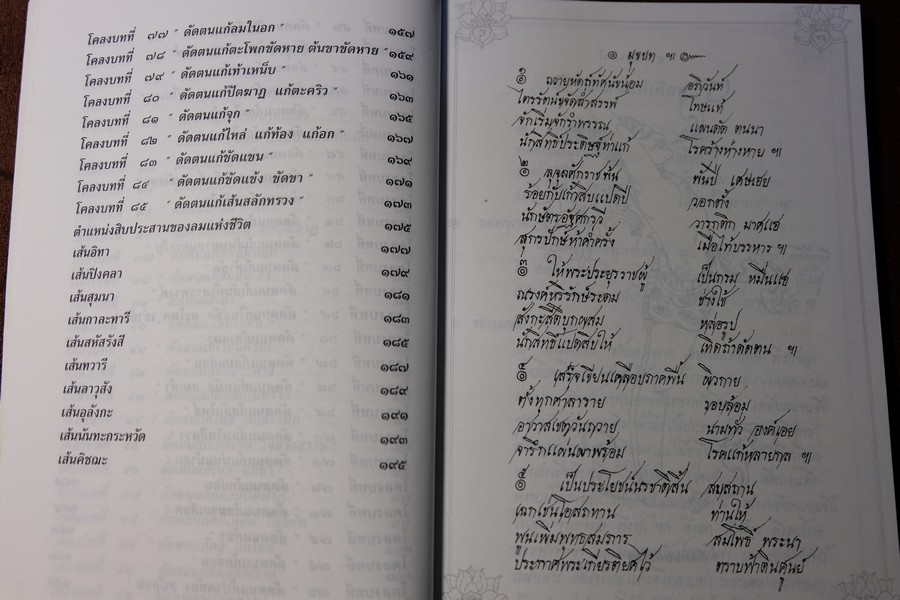 โคลงบทที่ ๗๗ " ดัดตนแก้ลมในอก " ๑๕๗
โคลงบทที่ ๗๘ " ดัดตนแก้ตะโพกขัดหาย ต้นขาขัดหาย " ๑๕๙
โคลงบทที่ ๗๙ " ดัดตนแก้เท้าเหน็บ " ๑๖๑
โคลงบทที่ ๘๐ " ดัดตนแก้ปัตฆาฏ แก้ตะคริว " ๑๖๓
โคลงบทที่ ๘๑ " ดัดตนแก้จุก " ๑๖๕
โคลงบทที่ ๘๒ " ดัดตนแก้ไหล่ แก้ท้อง แก้อก " ๑๖๗
โคลงบทที่ ๘๓ " ดัดตนแก้ขัดแขน " ๑๖๙
โคลงบทที่ ๘๔ " ดัดตนแก้ขัดแข้ง ขัดขา " ๑๗๑
โคลงบทที่ ๘๕ " ดัดตนแก้เส้นสลักทรวง " ๑๗๓
ตำแหน่งสิบประสานของลมแห่งชีวิต ๑๗๕
เส้นอิทา ๑๗๗
เส้นปิงคลา ๑๗๙
เส้นสุมนา ๑๘๑
เส้นกาละทารี ๑๘๓
เส้นสหัสรังสี ๑๘๕
เส้นทวารี ๑๘๗
เส้นลาวุสัง ๑๘๙
เส้นอุลังกะ ๑๙๑
เส้นนันทะกระหวัด ๑๙๓
เส้นคิชฌะ ๑๙๕
๑ ถวายหัตถ์ทัศนัขน้อม อภิวันท์
ไตรรัตน์ขจัดล่ำสรรพ์ โทษแท้
จักเริ่มจักรำพรรณ แผนดัด ตนนา
นักสิทธิ์ประดิษฐ์ท่าแก้ โรคร้างห่างหาย ๚
๒ พันปี เศษเฮย
ร้อยกับเก้าสิบแปดปี วอกตั้ง
นักษัตรอัฐศกรวี วารกติก มาศแฮ
สุกรปักษ์ห้าค่ำครั้ง เมื่อไท้บรรหาร ๚
๓ ให้พระประยูรราชผู้ เป็นกรม หมื่นแฮ
ณรงค์หริรักษ์ระดม ช่างใช้
สังกะสีดีบุกผสม หล่อรูป
นักสิทธิ์แปดสิบให้ เทิดถ้าดัดตน ๚
๔ เสร็จเขียนเคลือบภาคพื้น ผิวกาย
ตั้งทุกศาลาราย รอบล้อม
อาวาสเชตุวันถวาย นามทั่ว องค์เอย
จารึกแผ่นผาพร้อม โรคแก้หลายกล ๚
๕ เป็นประโยชน์นรชาติสิ้น สบสถาน
เฉกเช่นโอสถทาน ท่านให้
พูนเพิ่มพุทธสมภาร สมโพธิ์ พระนา
ประกาศพระเกียรติยศไว้ ตราบฟ้าดินศูนย์